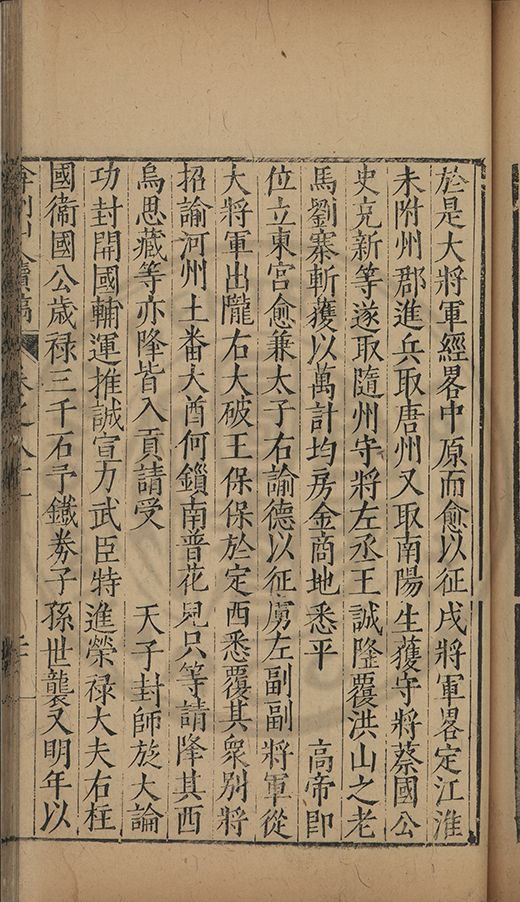 於是大將軍經畧中原而愈以征戌將軍畧定江淮
未附州郡進兵取唐州又取南陽生獲守將蔡國公
史克新等遂取隨州守將左丞王誠隆覆洪山之老
馬劉寨斬獲以萬計均房金商地悉平 高帝即
位立東宮愈兼太子右諭德以征虜左副副將軍從
大將軍出隴右大破王保保於定西悉覆其衆别將
招諭河州土畨大酋何鎖南普花兒只等請降其西
烏思藏等亦降皆入貢請受 天子封師旋大論
功封開國輔運推誠宣力武臣特進榮禄大夫右柱
國衞國公歲禄三千石予鐵劵子孫世襲又明年以
續稿 卷之八十